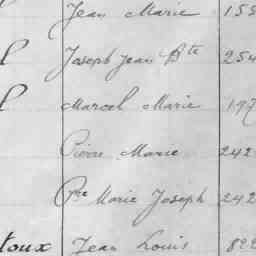 Jean Marie 155
l Joseph Jean Bte 254
l Marcel Marie 197
Pierre Marie 242
Pre Marie Joseph 242
toux Jean Louis 822